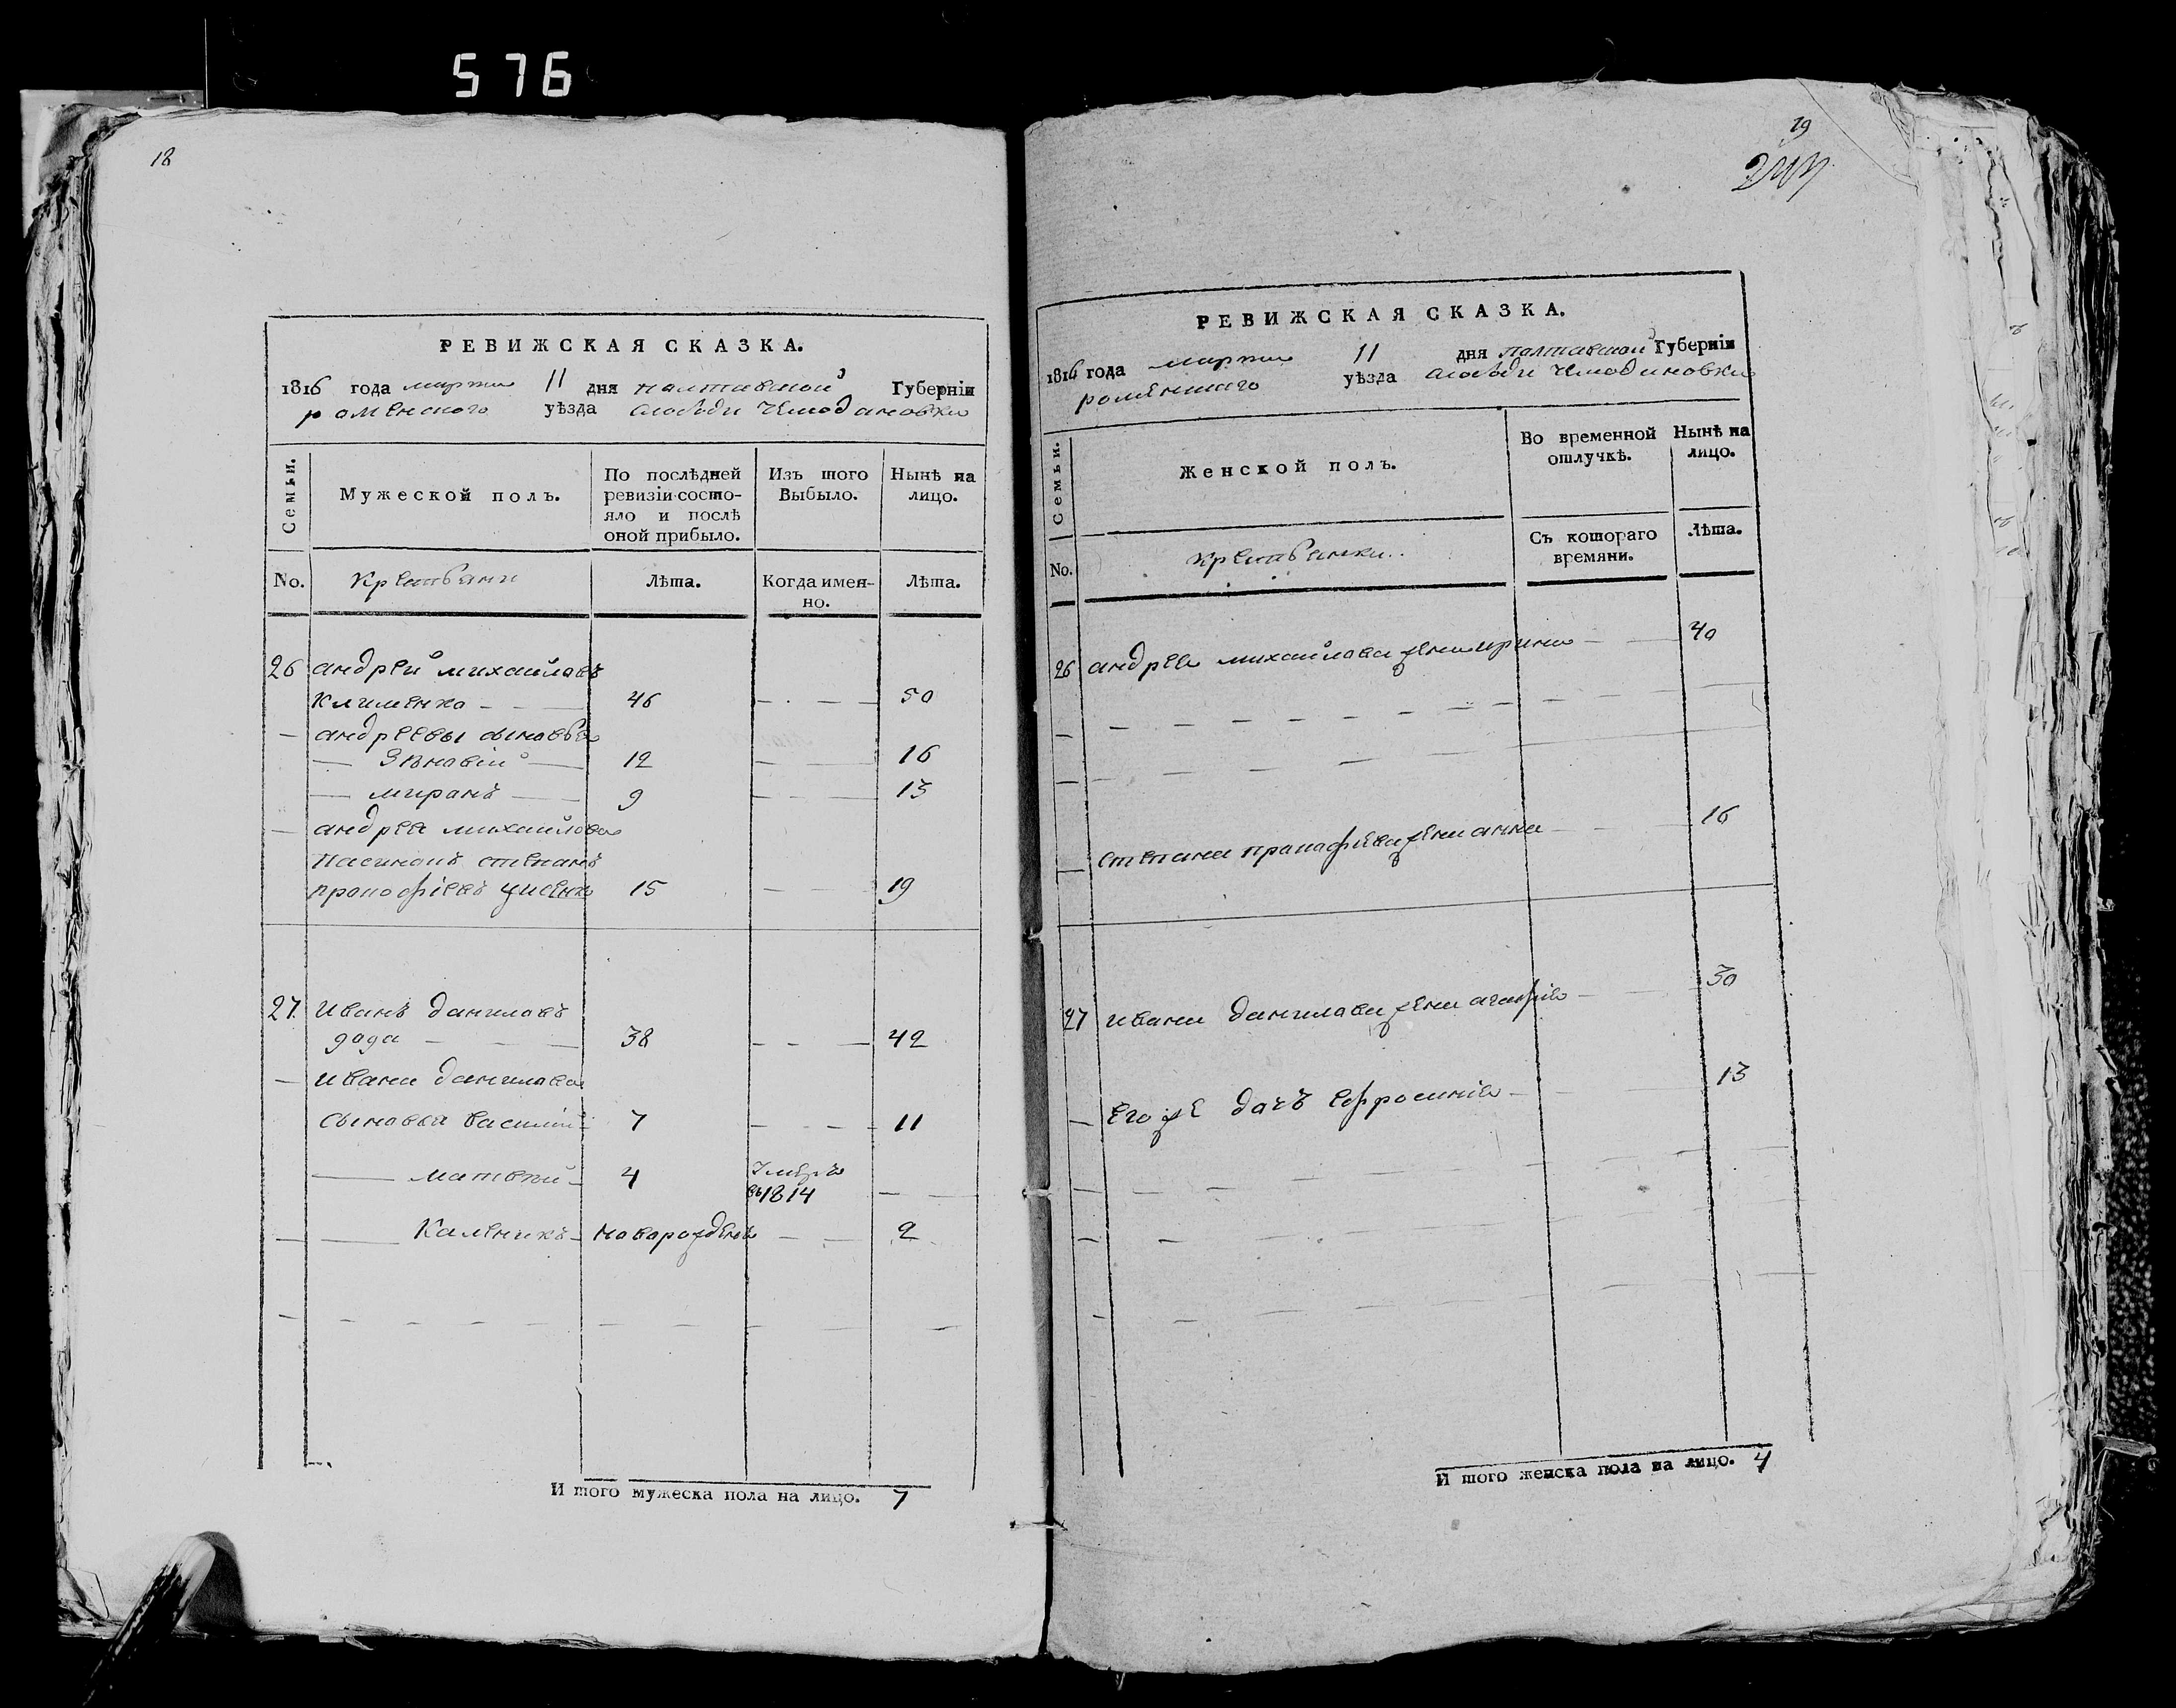 576
18
РЕВИЖСКАЯ СКАЗКА.
1816 года марта 11 дня полтавской Губерніи
роменского уѣзда слободы Чемодановки
Семьи.
Мужеской полъ.
По послѣдней ревизіи состо-
яло и послѣ
оной прибыло.
Изъ того
Выбыло.
Нынѣ на
лицо.
No.
Крестьяни
Лѣта.
Когда имен-
но.
Лѣта.
26 андрей михайловъ
Клименко 46 50
андреевы сыновья
Зѣновій 12 16
миронъ 9 13
андрея михайлова
Пасинокъ степанъ
прокофіевъ 15 19
27 Иванъ Даниловъ
38 42
Ивана данилова
сыновья василій 7 11
матвей 4 Умеръ
въ 1814
Каленикъ новорожденъ 2
И того мужеска пола на лицо. 7
19
РЕВИЖСКАЯ СКАЗКА.
1816 года марта 11 дня полтавской Губерніи
роменского уѣзда слободы Чемодановки
Семьи.
Женской полъ.
Во временной
отлучкѣ.
Нынѣ на
лицо.
No.
Крестьянки
Съ котораго
времяни.
Лѣта.
26 андрея михайлова жена ирина 40
степана прокофиева жена анна 16
27 ивана данилова жена агафия 30
его же дочъ ефросинія 13
И того женска пола на лицо. 4